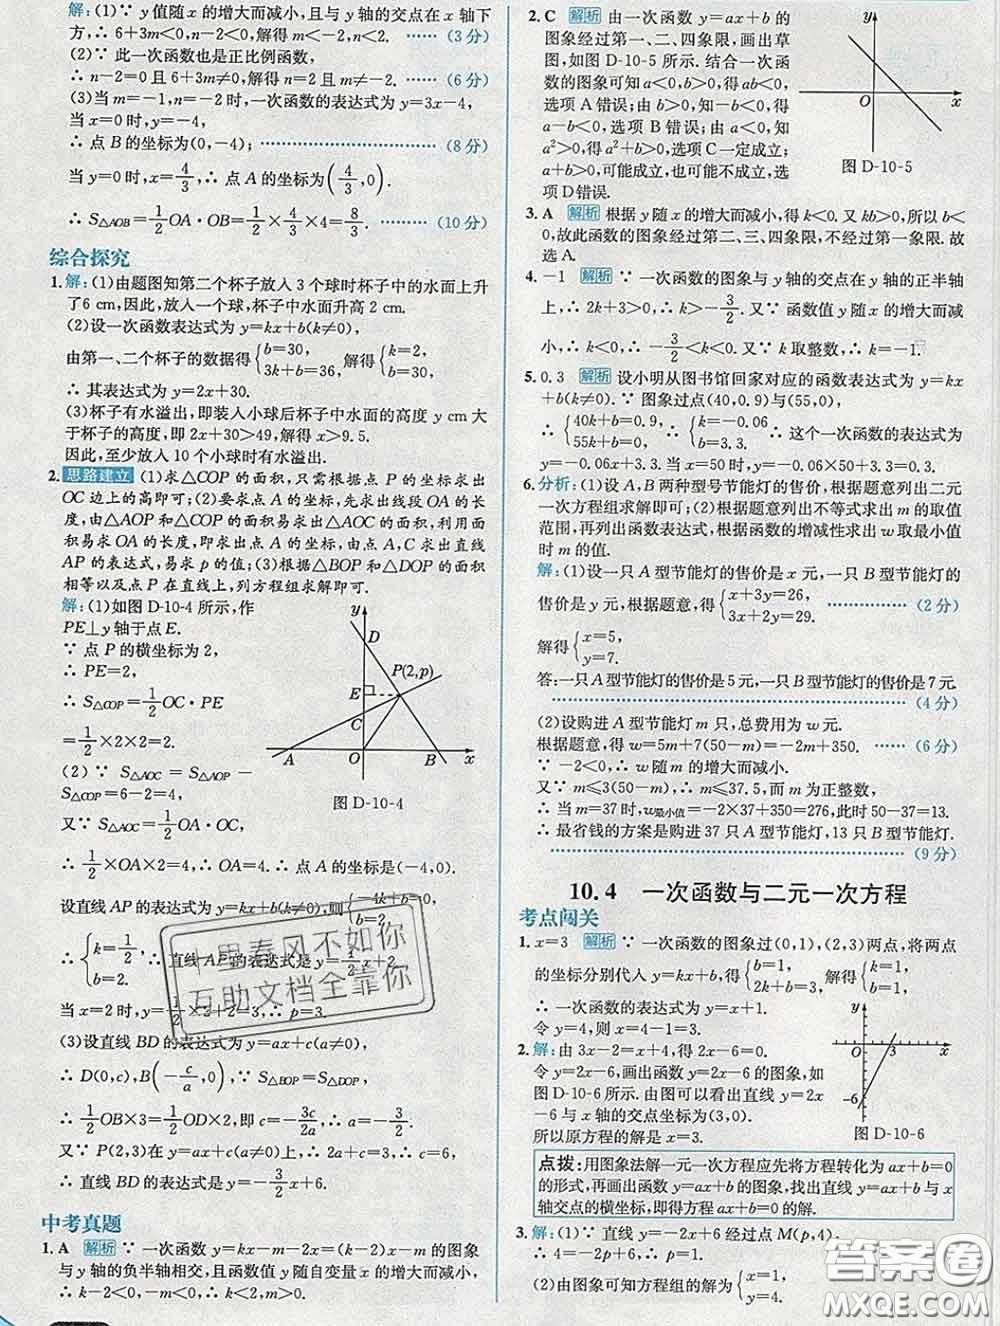 解:(1)∵ y值随x的增大而减小,且与y轴的交点在x轴下
方,∴ 6+3m<0,n-2<0,解得m<-2,n<2. ……(3分)
(2)∵ 此一次函数也是正比例函数,
∴ n-2=0且6+3m≠0,解得n=2且m≠-2. ……(6分)
(3)当m=-1,n=-2时,一次函数的表达式为y=3x-4,
当x=0时,y=-4,
∴ 点B的坐标为(0,-4); ……(8分)
当y=0时,x=4/3,∴ 点A的坐标为(4/3,0).
∴ S△AOB=1/2 OA·OB=1/2×4/3×4=8/3. ……(10分)
综合探究
1.解:(1)由题图知第二个杯子放入3个球时杯子中的水面上升
了6 cm,因此,放入一个球,杯子中水面升高2 cm.
(2)设一次函数表达式为y=kx+b(k≠0),
由第一、二个杯子的数据得{b=30, 3k+b=36,解得{k=2, b=30.
∴ 其表达式为y=2x+30.
(3)杯子有水溢出,即装入小球后杯子中水面的高度y cm大
于杯子的高度,即2x+30>49,解得x>9.5.
因此,至少放入10个小球时有水溢出.
2.思路建立 (1)求△COP的面积,只需根据点P的坐标求出
OC边上的高即可;(2)要求点A的坐标,先求出线段OA的长
度,由△AOP和△COP的面积易求出△AOC的面积,利用面
积易求OA的长度,即求出点A的坐标,由点A,C求出直线
AP的表达式,易求p的值;(3)根据△BOP和△DOP的面积
相等以及点P在直线上,列方程组求解即可.
解:(1)如图D-10-4所示,作
PE⊥y轴于点E.
∵ 点P的横坐标为2,
∴ PE=2,
∴ S△COP=1/2 OC·PE
=1/2×2×2=2.
(2)∵ S△AOC=S△AOP-
S△COP=6-2=4,
又∵ S△AOC=1/2 OA·OC,
y
D
P(2,p)
E
C
A
O
B
x
图D-10-4
∴ 1/2×OA×2=4,∴ OA=4.∴ 点A的坐标是(-4,0).
设直线AP的表达式为y=kx+b(k≠0),则{-4k+b=0, b=2,
∴ {k=1/2, b=2. ∴ 直线AP的表达式是y=1/2 x+2.
当x=2时,y=1/2×2+2=3,∴ p=3.
(3)设直线BD的表达式为y=ax+c(a≠0),
∴ D(0,c),B(-c/a,0),∵ S△BOP=S△DOP,
∴ 1/2 OB×3=1/2 OD×2,即-3c/2a=c,∴ a=-3/2.
又∵ P(2,3)在y=ax+c(a≠0)上,∴ 2a+c=3,∴ c=6,
∴ 直线BD的表达式是y=-3/2 x+6.
中考真题
1.A 解析 ∵ 一次函数y=kx-m-2x=(k-2)x-m的图象
与y轴的负半轴相交,且函数值y随自变量x的增大而减小,
∴ k-2<0,-m<0,∴ k<2,m>0.
2.C 解析 由一次函数y=ax+b的
图象经过第一、二、四象限,画出草
图,如图D-10-5所示.结合一次函
数的图象可知a<0,b>0,即ab<0,
选项A错误;由a<0,b>0,得
a-b<0,选项B错误;由a<0,知
a²>0,得a²+b>0,选项C一定成立;
a+b>0,可能成立,也可能不成立,选
项D错误.
y
O
x
图D-10-5
3.A 解析 根据y随x的增大而减小,得k<0.又kb>0,所以b<
0,故此函数的图象经过第二、三、四象限,不经过第一象限.故
选A.
4.-1 解析 ∵ 一次函数的图象与y轴的交点在y轴的正半轴
上,∴ 2k+3>0,∴ k>-3/2.又∵ 函数值y随x的增大而减
小,∴ k<0,∴ -3/2<k<0.又∵ k取整数,∴ k=-1.
5.0.3 解析 设小明从图书馆回家对应的函数表达式为y=kx
+b(k≠0).∵ 图象过点(40,0.9)与(55,0),
∴ {40k+b=0.9, 55k+b=0,∴ {k=-0.06, b=3.3.∴ 这个一次函数的表达式为y=
-0.06x+3.3.当x=50时,y=-0.06×50+3.3=0.3.
6.分析:(1)设A,B两种型号节能灯的售价,根据题意列出二元
一次方程组求解即可;(2)根据题意列出不等式求出m的取值
范围,再列出函数表达式,根据函数的增减性求出w取最小值
时m的值.
解:(1)设一只A型节能灯的售价是x元,一只B型节能灯的
售价是y元,根据题意,得{x+3y=26, 3x+2y=29. ……(2分)
解得{x=5, y=7.
答:一只A型节能灯的售价是5元,一只B型节能灯的售价是7元.
……(4分)
(2)设购进A型节能灯m只,总费用为w元.
根据题意,得w=5m+7(50-m)=-2m+350. ……(6分)
∵ -2<0,∴ w随m的增大而减小.
又∵ m≤3(50-m),∴ m≤37.5,而m为正整数,
∴ 当m=37时,w最小值=-2×37+350=276,此时50-37=13.
∴ 最省钱的方案是购进37只A型节能灯,13只B型节能灯.
……(9分)
10.4 一次函数与二元一次方程
考点闯关
1.x=3 解析 ∵ 一次函数的图象过(0,1),(2,3)两点,将两点
的坐标分别代入y=kx+b,得{b=1, 2k+b=3,解得{k=1, b=1.
∴ 一次函数的表达式为y=x+1.
令y=4,则x=4-1=3.
2.解:由3x-2=x+4,得2x-6=0.
令y=2x-6,画出函数y=2x-6的图象,如
图D-10-6所示.由图可以看出直线y=2x
-6与x轴的交点坐标为(3,0).
所以原方程的解是x=3.
y
O
3
x
-6
图D-10-6
点拨:用图象法解一元一次方程应先将方程转化为ax+b=0
的形式,再画出函数y=ax+b的图象,找出直线y=ax+b与x
轴交点的横坐标,即得方程ax+b=0的解.
3.解:(1)∵ 直线y=-2x+6经过点M(p,4),
∴ 4=-2p+6,∴ p=1.
(2)由图象可知方程组的解为{x=1, y=4.
十里春风不如你
互助文档全靠你
答案圈
MXQE.COM